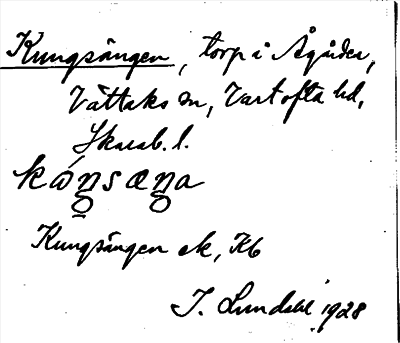 Kungsängen, torp i Ågården,
Vättaks sn, Vartofta hd,
Skarab. l.
kóŋsæŋa
Kungsängen ek, Kb
I. Lundahl 1928